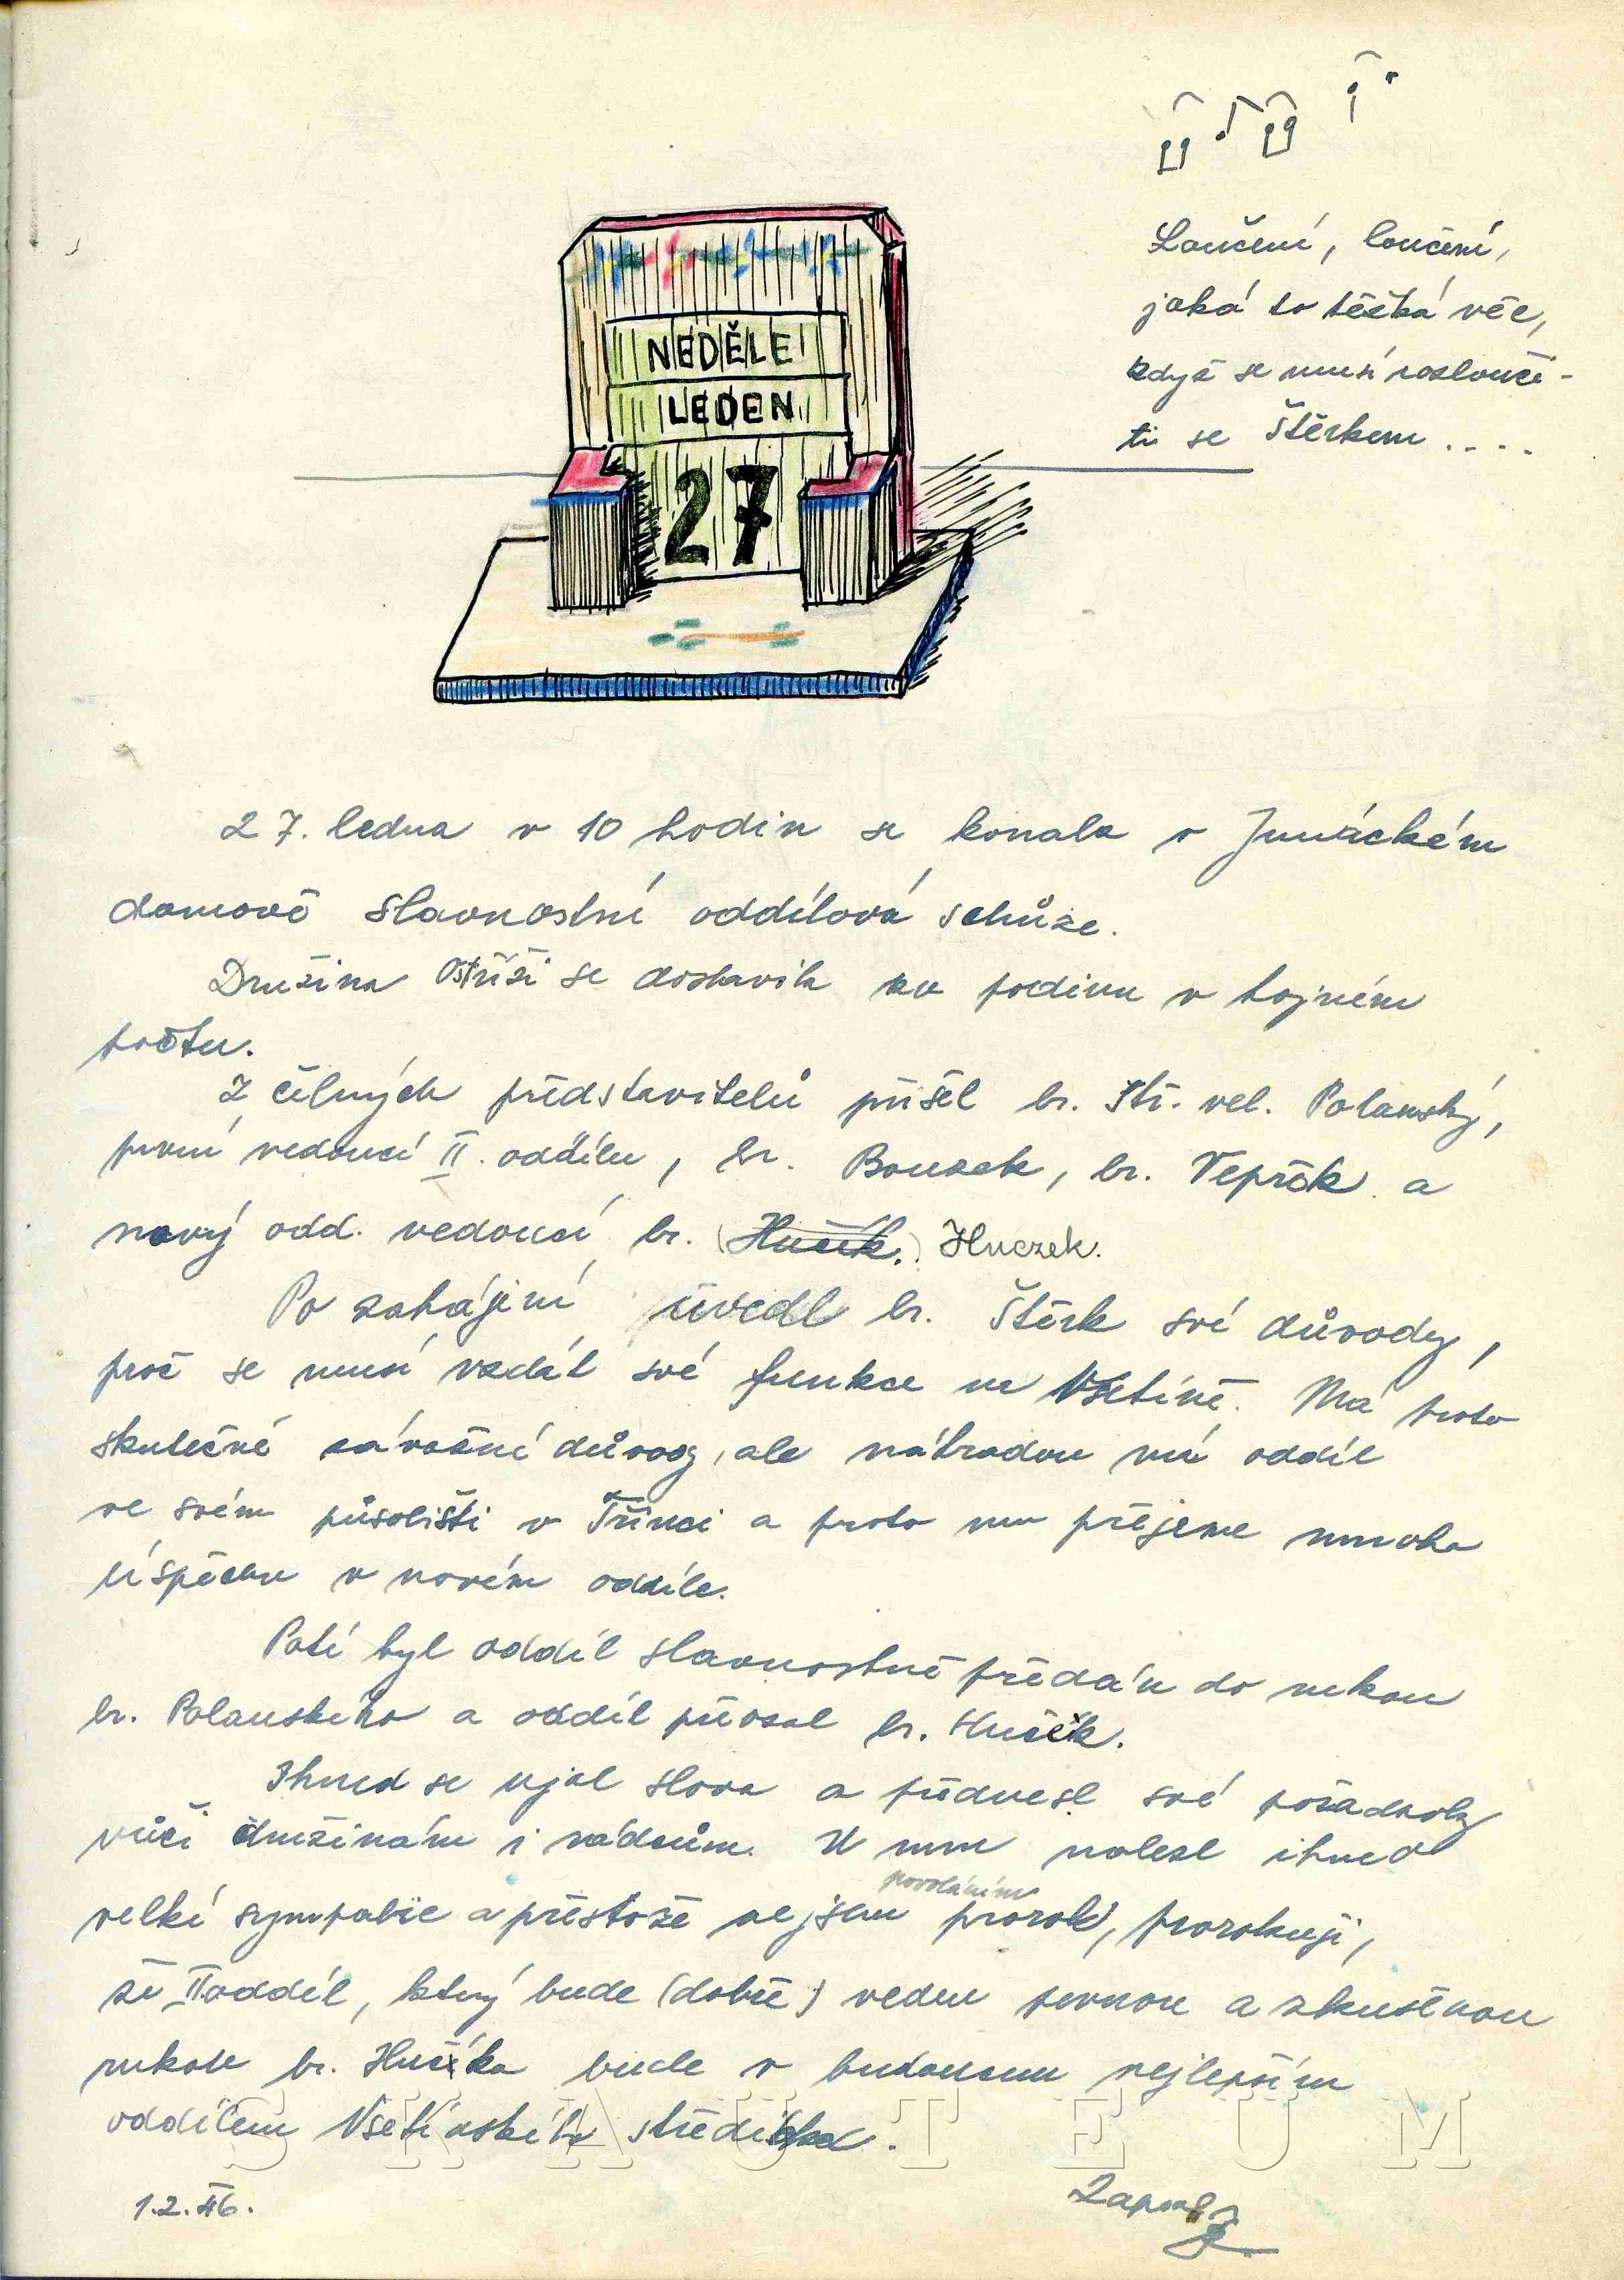 Loučení, loučení,
jaká to těžká věc,
když se musí rozlouči-
ti se Štěrkem ....
NEDĚLE
LEDEN
27
27. ledna v 10 hodin se konala v Junáckém
domově slavnostní oddílová schůze.
Družina Ostříži se dostavila ku podivu v hojném
počtu.
Z čelných představitelů přišel br. Str. vel. Polanský,
první vedoucí II. oddílu, br. Bouzek, br. Vepřek a
nový odd. vedoucí br. (Hučík.) Huczek.
Po zahájení uvedl br. Štěrk své důvody,
proč se musí vzdát své funkce ve Vsetíně. Má proto
skutečné závažné důvody, ale náhradou má oddíl
ve svém působišti v Třinci a proto mu přejeme mnoho
úspěchu v novém oddíle.
Poté byl oddíl slavnostně předán do rukou
br. Polanského a oddíl převzal br. Hučík.
Ihned se ujal slova a přednesl své požadavky
vůči družinám i rádcům. U mne nalezl ihned
velké sympatie a přestože nejsem povoláním prorok, prorokuji,
že II oddíl, který bude (dobře) veden pevnou a zkušenou
rukou br. Hučíka bude v budoucnu nejlepším
oddílem Vsetínského střediska.
1.2.46.
Zapsal
SKAUTEUM